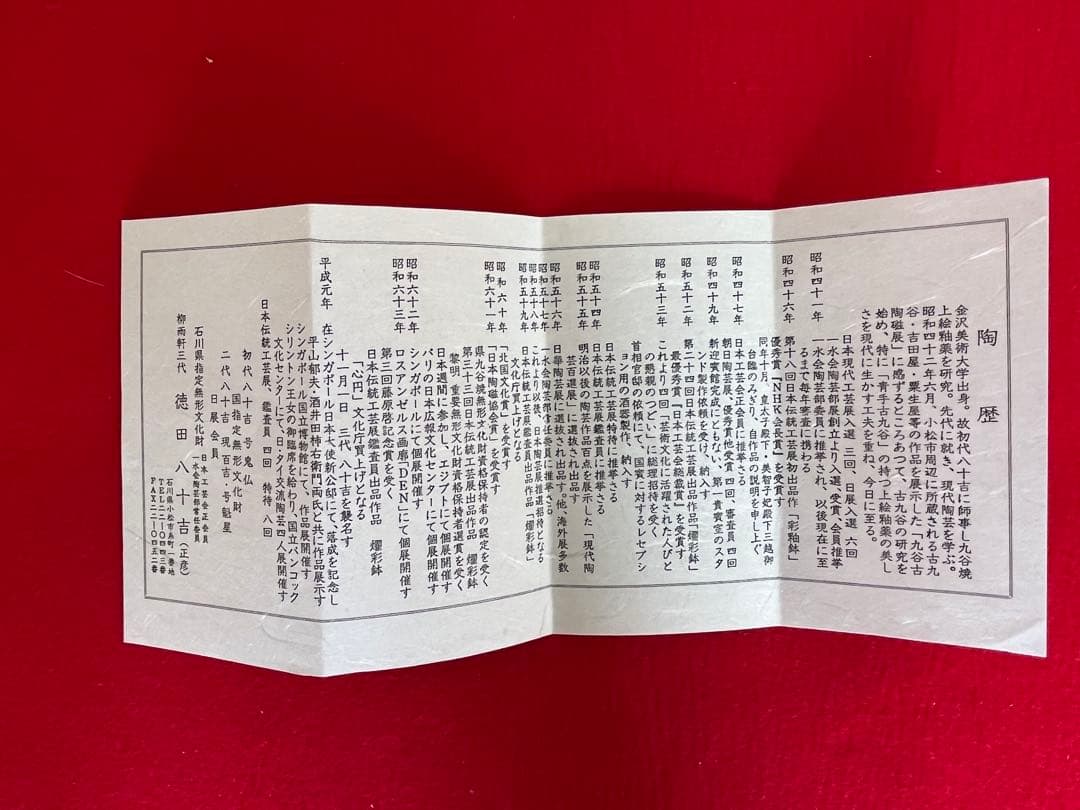 陶歴
金沢美術大学出身。故初代八十吉に師事し九谷焼
上絵釉薬を研究。先代に就き、現代陶芸を学ぶ。
昭和四十一年六月、小松市周辺に所蔵される古九
谷・吉田屋・粟生屋等の作品を展示した「九谷古
陶磁展」に感ずるところあって、古九谷の研究を
始め、特に「青手古九谷」の持つ上絵釉薬の美し
さを現代に生かす工夫を重ね、今日に至る。
日本現代工芸展入選 三回、日展入選 六回
昭和四十一年 一水会陶芸部展創立より入選、受賞、会員推挙
一水会陶芸部委員に推挙され、以後現在に至
るまで毎年審査に携わる
昭和四十六年 第十八回日本伝統工芸展初出品作「彩釉鉢」
優秀賞「NHK会長賞」を受賞す
同年十月、皇太子殿下・美智子妃殿下三越御
台臨のみぎり、自作品の説明を申し上ぐ
昭和四十七年 日本工芸会正会員に推挙さる
朝日陶芸展、優秀賞他受賞 四回、審査員 四回
昭和四十九年 新迎賓館完成にともない、第一貴賓室のスタ
ンド製作依頼を受け、納入す
昭和五十二年 第二十四回日本伝統工芸展出品作品「燿彩鉢」
最優秀賞「日本工芸会総裁賞」を受賞す
昭和五十三年 これより四回「芸術文化に活躍された人びと
の懇親のつどい」に総理招待を受く
首相官邸の依頼にて、国賓に対するレセプシ
ョン用の酒器製作、納入す
昭和五十四年 日本伝統工芸展特待に推挙さる
昭和五十五年 明治以後の陶芸作品百点を展示した「現代陶
芸百選展」に選抜され出品す
昭和五十六年 日華陶芸展に選抜され出品す。他、海外展多数
昭和五十七年 一水会陶芸部常任委員に推挙さる
昭和五十八年 これより以後、日本陶芸展推選招待となる
昭和五十九年 日本伝統工芸展鑑査員出品作品「燿彩鉢」
文化庁買上げとなる
昭和六十年 「北国文化賞」を受賞す
昭和六十一年 「日本陶磁協会賞」を受賞す
県九谷焼無形文化財資格保持者の認定を受く
第三十三回日本伝統工芸展出品作品 燿彩鉢
黎明 重要無形文化財資格保持者選賞を受く
昭和六十二年 日本週間に参加し、エジプトにて個展開催す
パリの日本広報文化センターにて個展開催す
シンガポールにて個展開催す
昭和六十三年 ロスアンゼルス画廊「DEN」にて個展開催す
第三回藤原啓記念賞を受く
日本伝統工芸展鑑査員出品作品 燿彩鉢
「心円」文化庁買上げとなる
十一月一日 三代 八十吉を襲名す
平成元年 在シンガポール日本大使新公邸にて、落成を記念し
平山郁夫、酒井田柿右衛門両氏と共に作品展示す
シンガポール国立博物館にて、作品展開催す
シリントン王女の御臨席を給わり、国立バンコック
文化センターにて日・タイ交流陶芸四人展開催す
日本伝統工芸展、鑑査員 四回 特待 八回
初代 八十吉 号 鬼仏
国指定無形文化財
二代 八十吉 号 百吉・号 魁星
日展会員
石川県指定無形文化財
日本工芸会正会員
一水会陶芸部常任委員
柳雨軒三代 徳田八十吉(正彦)
石川県小松市島町一番地